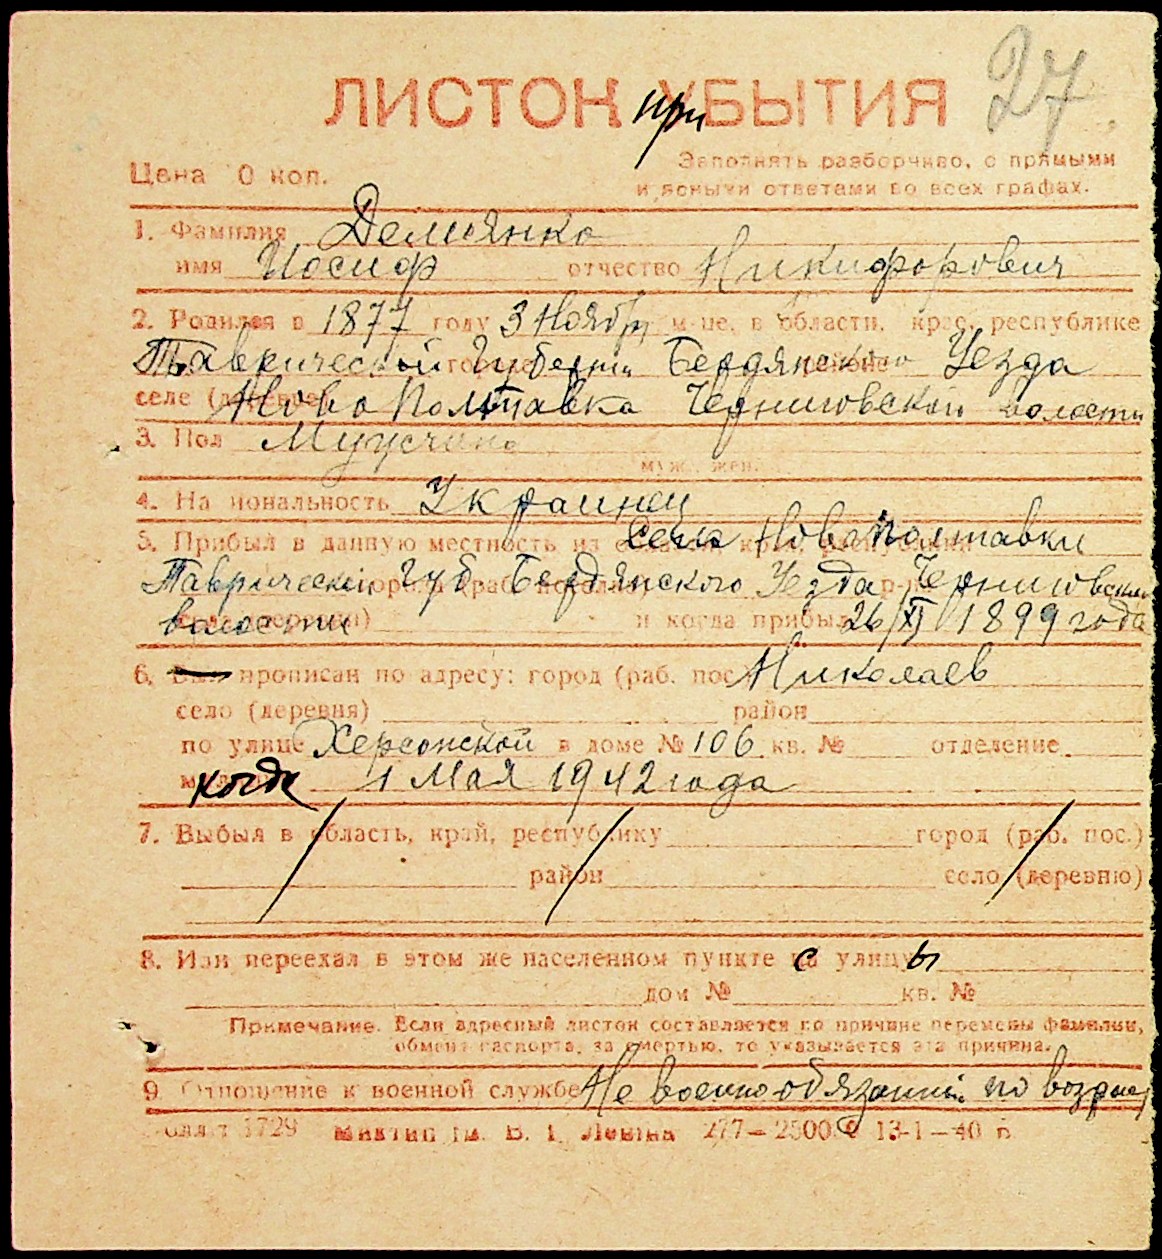 27
ЛИСТОК при УБЫТИЯ
Цена 10 коп.
Заполнять разборчиво, с прямыми
и ясными ответами во всех графах.
1. Фамилия Демьянко
имя Иосиф отчество Никифорович
2. Родился в 1877 году 3 Ноябр м-це, в области, крае, республике
Таврической Губерни Бердянского Уезда
селе (деревне) Ново Полтавка Черниговской волости
3. Пол Мужчина
муж., жен.
4. Национальность Украинец
5. Прибыл в данную местность из Села Новополтавки
Таврической Губ Бердянского Уезда Черниговской
волости и когда прибыл 26/XI 1899 года
6. прописан по адресу: город (раб. пос Николаев
село (деревня) район
по улице Херсонской в доме № 106 кв. № отделение
когда 1 Мая 1942 года
7. Выбыл в область, край, республику город (раб. пос.)
район село (деревню)
8. Или переехал в этом же населенном пункте с улицы
дом № кв. №
Примечание. Если адресный листок составляется по причине перемены фамилии,
обмена паспорта, за смертью, то указывается эта причина.
9 Отношение к военной службе Не военнообязанный по возраст
1729 им. В. И. Ленина 277—25000 13-1—40 г.